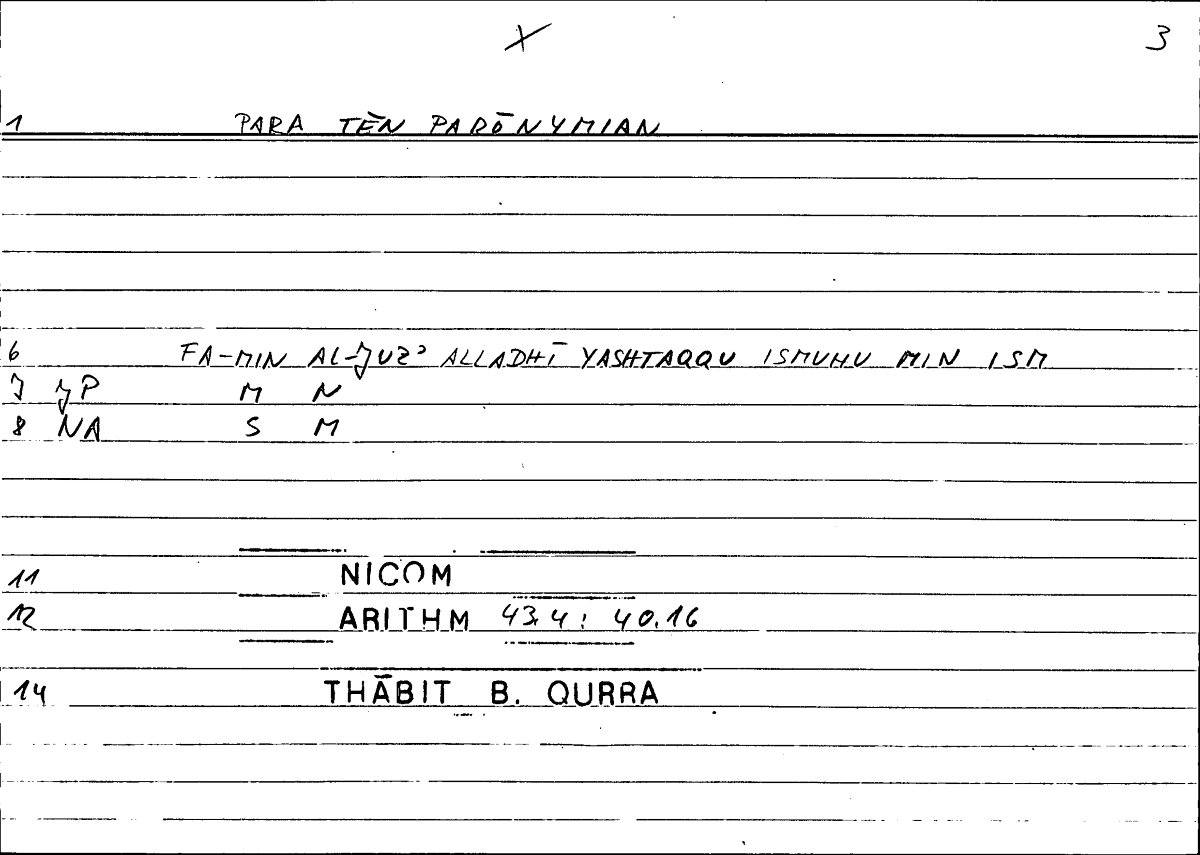 X 3
1 PARA TĒN PARŌNYMIAN
6 FA-MIN AL-JUZʾ ALLADHĪ YASHTAQQU ISMUHU MIN ISM
7 JP M N
8 NA S M
11 NICOM
12 ARITHM 43.4 : 40.16
14 THĀBIT B. QURRA